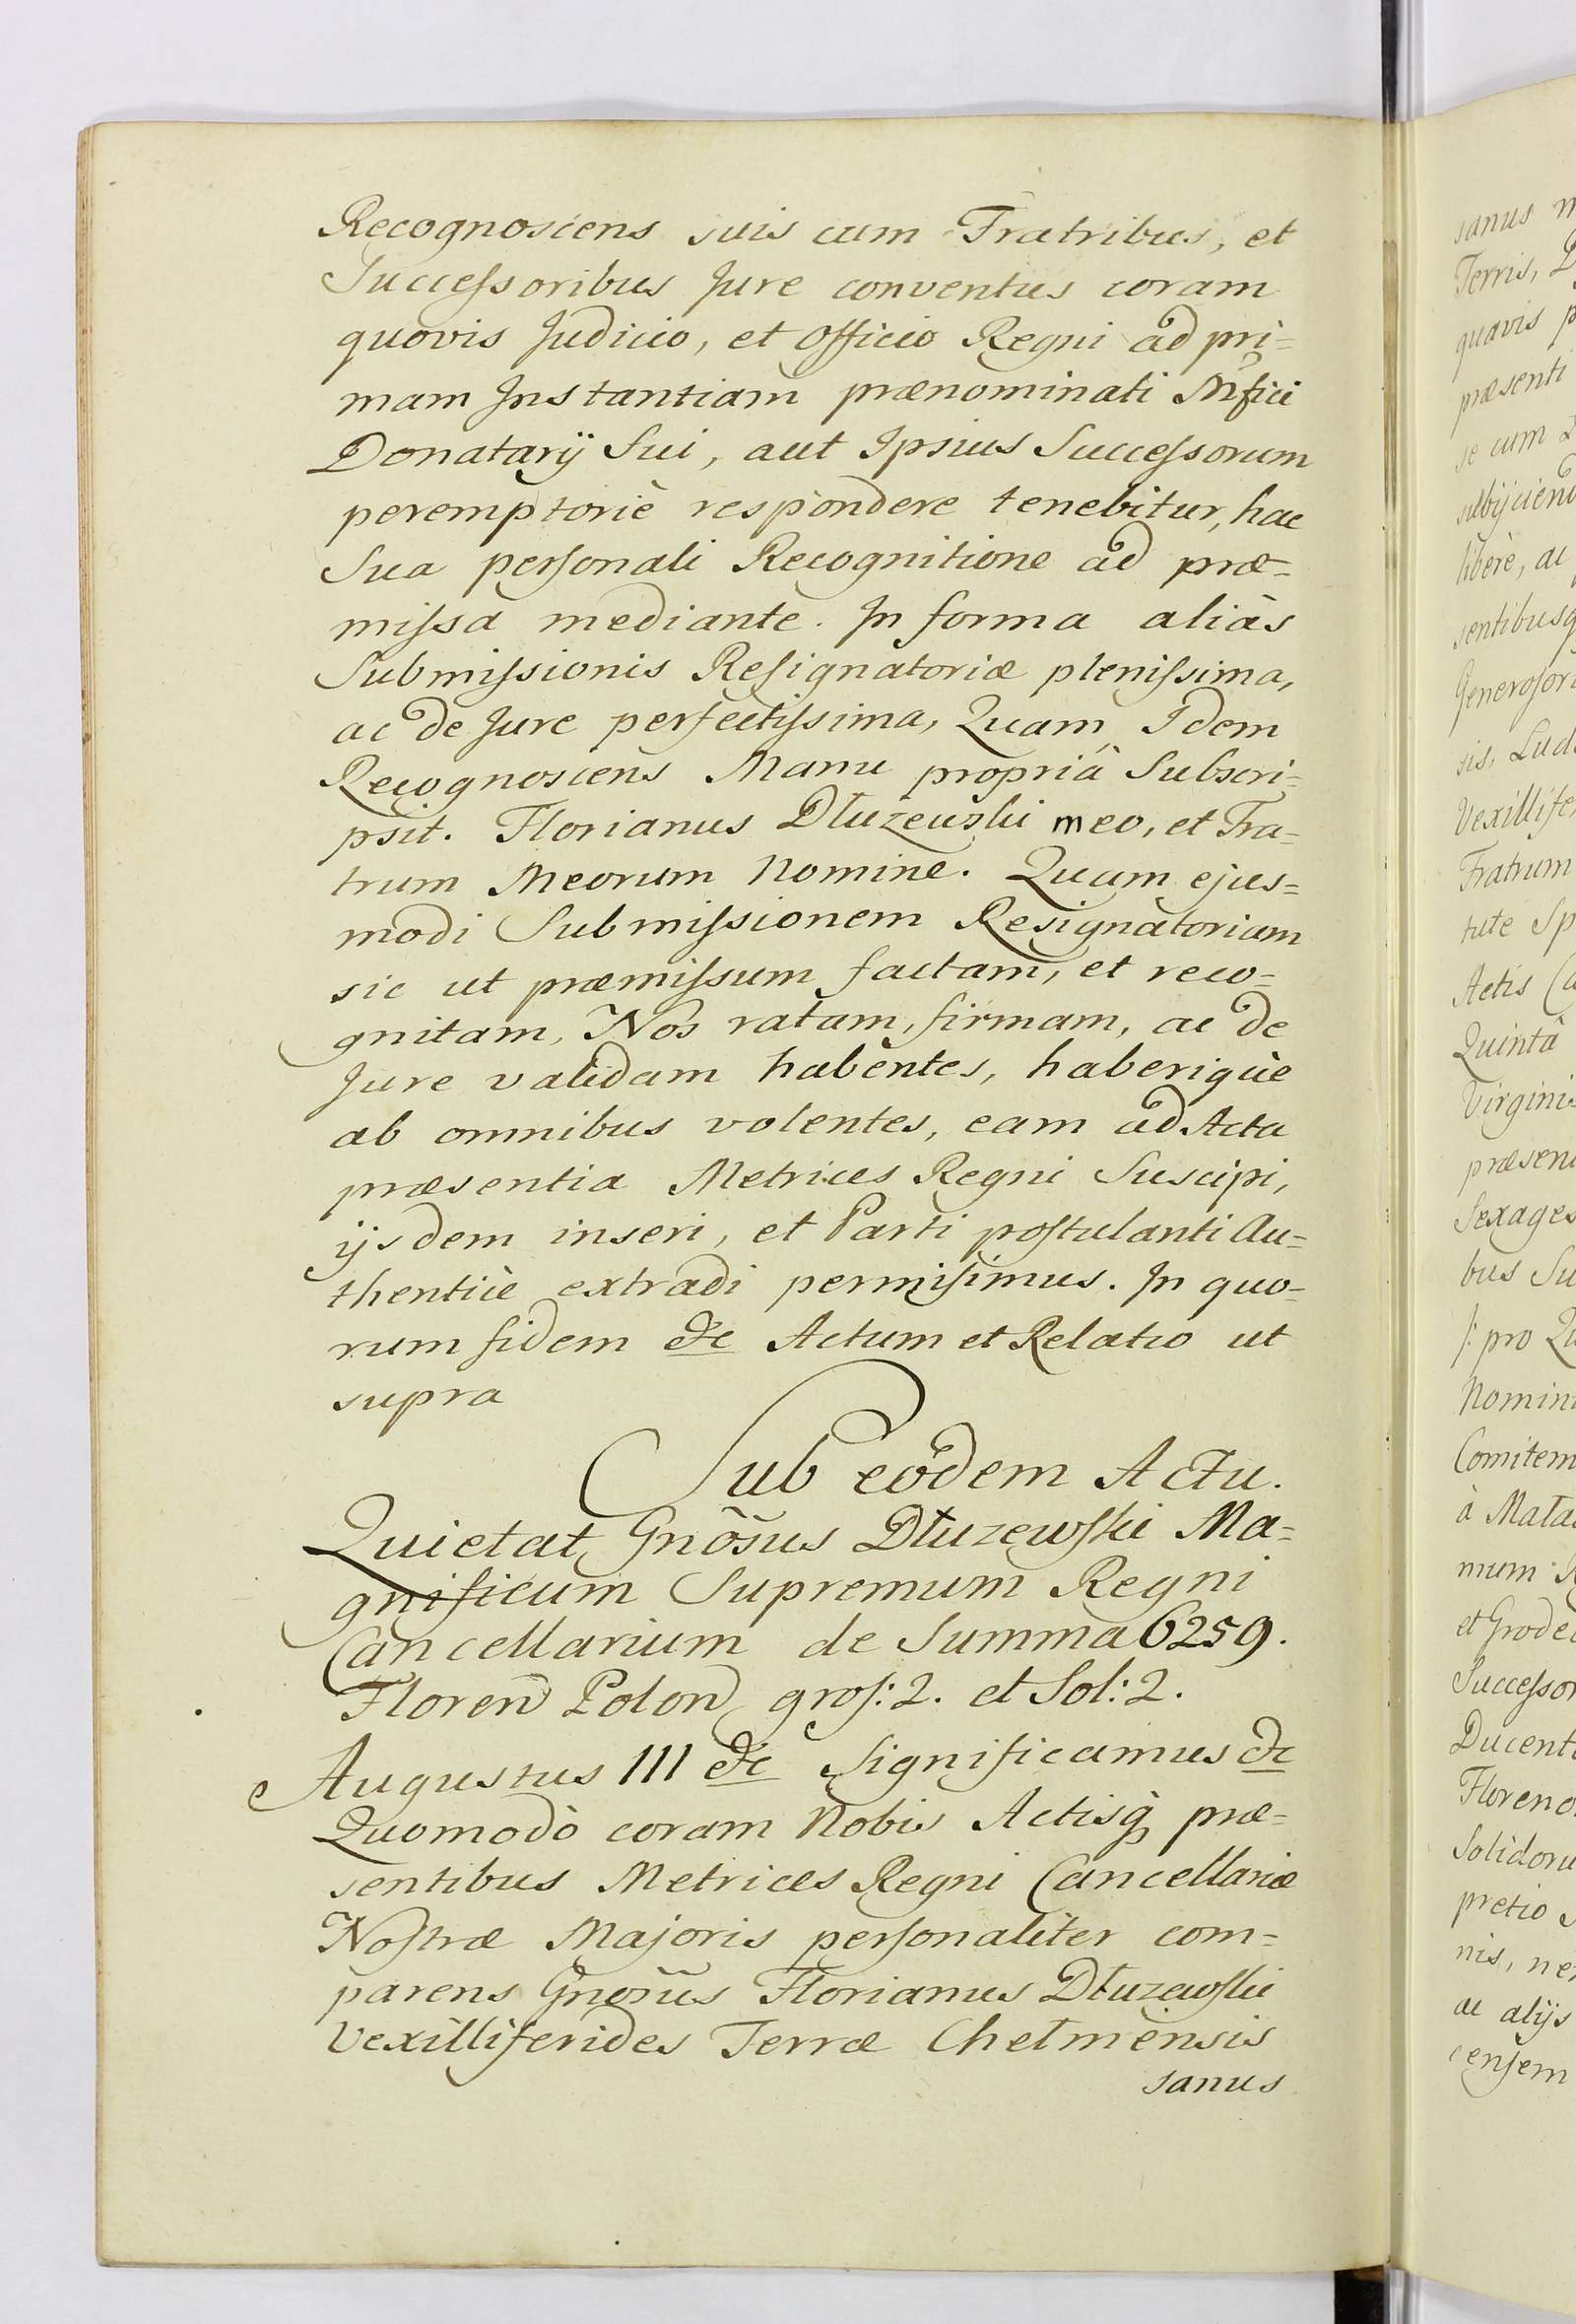 Recognoscens suis cum Fratribus, et
Successoribus Jure conventus coram
quovis Judicio, et Officio Regni ad pri=
mam Instantiam prænominati Mfici
Donatarÿ Sui, aut Ipsius Successorum
peremptoriè respondere tenebitur, hac
Sua personali Recognitione ad præ=
missa mediante. In forma aliàs
Submissionis Resignatoriæ plenissima,
ac de Jure perfectissima, Quam Idem
Recognoscens Manu propriâ Subscri=
psit. Florianus Dłużewski meo, et Fra=
trum Meorum Nomine. Quam ejus=
modi Submissionem Resignatoriam
sic ut præmissum factam, et reco=
gnitam, Nos ratam, firmam, ac de
Jure validam habentes, haberiquè
ab omnibus volentes, eam ad Acta
præsentia Metrices Regni Suscipi,
ijsdem inseri, et Parti postulanti Au=
thenticè extradi permisimus. In quo=
rum fidem &c Actum et Relatio ut
supra
Sub eodem Actu.
Quietat Gnõsus Dłuzewski Ma=
gnificum Supremum Regni
Cancellarium de Summa 6259.
Floren Polon gros: 2. et Sol: 2.
Augustus III &c Significamus &c
Quomodò coram Nobis Actisq́ præ=
sentibus Metrices Regni Cancellariæ
Nostræ Majoris personaliter com=
parens Gnosus Florianus Dłuzewski
Vexilliferides Terræ Chełmensis
sanus
sanus
Terris,
quavis
præsenti
se cum
subijciend
liberè, ac
sentibusq
Generosor
sis, Lud
Vexillife
Fratrum
tute Sp
Actis
Quintâ
Virginis
præsen
Sexages
bus Su
/: pro Qu
Nomin
Comitem
à Mała
mum
et Grode
Successor
Ducent
Floreno
Solidoru
pretio
nis, ne
ac alijs
censem